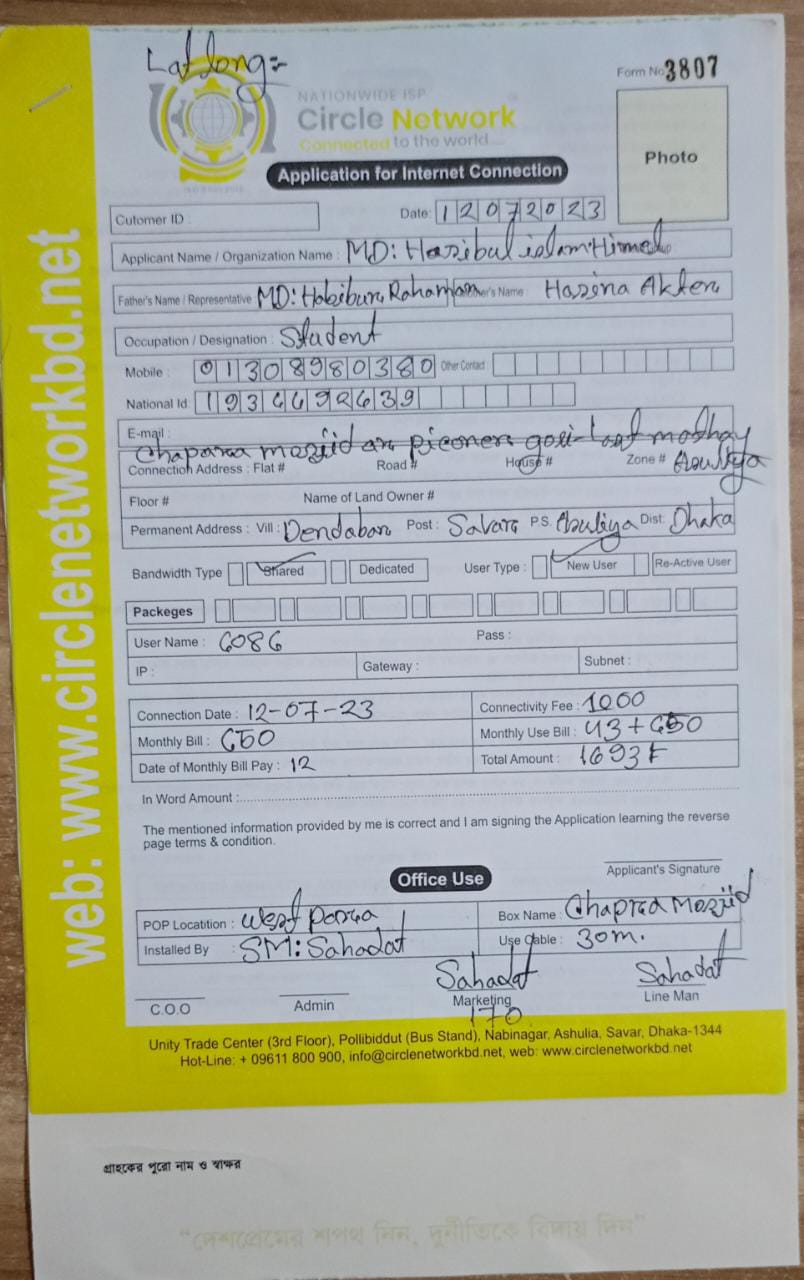 Lat long:-
Form No 3807
NATIONWIDE ISP
Circle Network
Connected to the world....
Photo
Application for Internet Connection
Cutomer ID :
Date: 12072023
Applicant Name / Organization Name : MD: Hasibul islam Himel
Father's Name / Representative MD: Habibur Rahaman Mother's Name : Hasina Akter
Occupation / Designation : Student
Mobile : 01308980380 Other Contact :
National Id 1934492439
E-mail :
Chapara masjid ar piconer goli last mathay
Connection Address : Flat # Road # House # Zone # Asuliya
Floor # Name of Land Owner #
Permanent Address : Vill : Dendabar Post : Savar P.S. Asuliya Dist: Dhaka
Bandwidth Type Shared Dedicated User Type : New User Re-Active User
Packeges
User Name : 6086 Pass :
IP : Gateway : Subnet :
Connection Date : 12-07-23 Connectivity Fee : 1000
Monthly Bill : 650 Monthly Use Bill : 43+650
Date of Monthly Bill Pay : 12 Total Amount : 1693
In Word Amount :
The mentioned information provided by me is correct and I am signing the Application learning the reverse
page terms & condition.
Applicant's Signature
Office Use
POP Locatition : West Parra Box Name : Chapra Mosjid
Installed By : SM: Sahadat Use Cable : 30m.
Sahadat Sahadat
C.O.O Admin Marketing Line Man
170
Unity Trade Center (3rd Floor), Pollibiddut (Bus Stand), Nabinagar, Ashulia, Savar, Dhaka-1344
Hot-Line: + 09611 800 900, info@circlenetworkbd.net, web: www.circlenetworkbd.net
web: www.circlenetworkbd.net
গ্রাহকের পুরো নাম ও স্বাক্ষর
"দেশপ্রেমের শপথ নিন, দুর্নীতিকে বিদায় দিন"